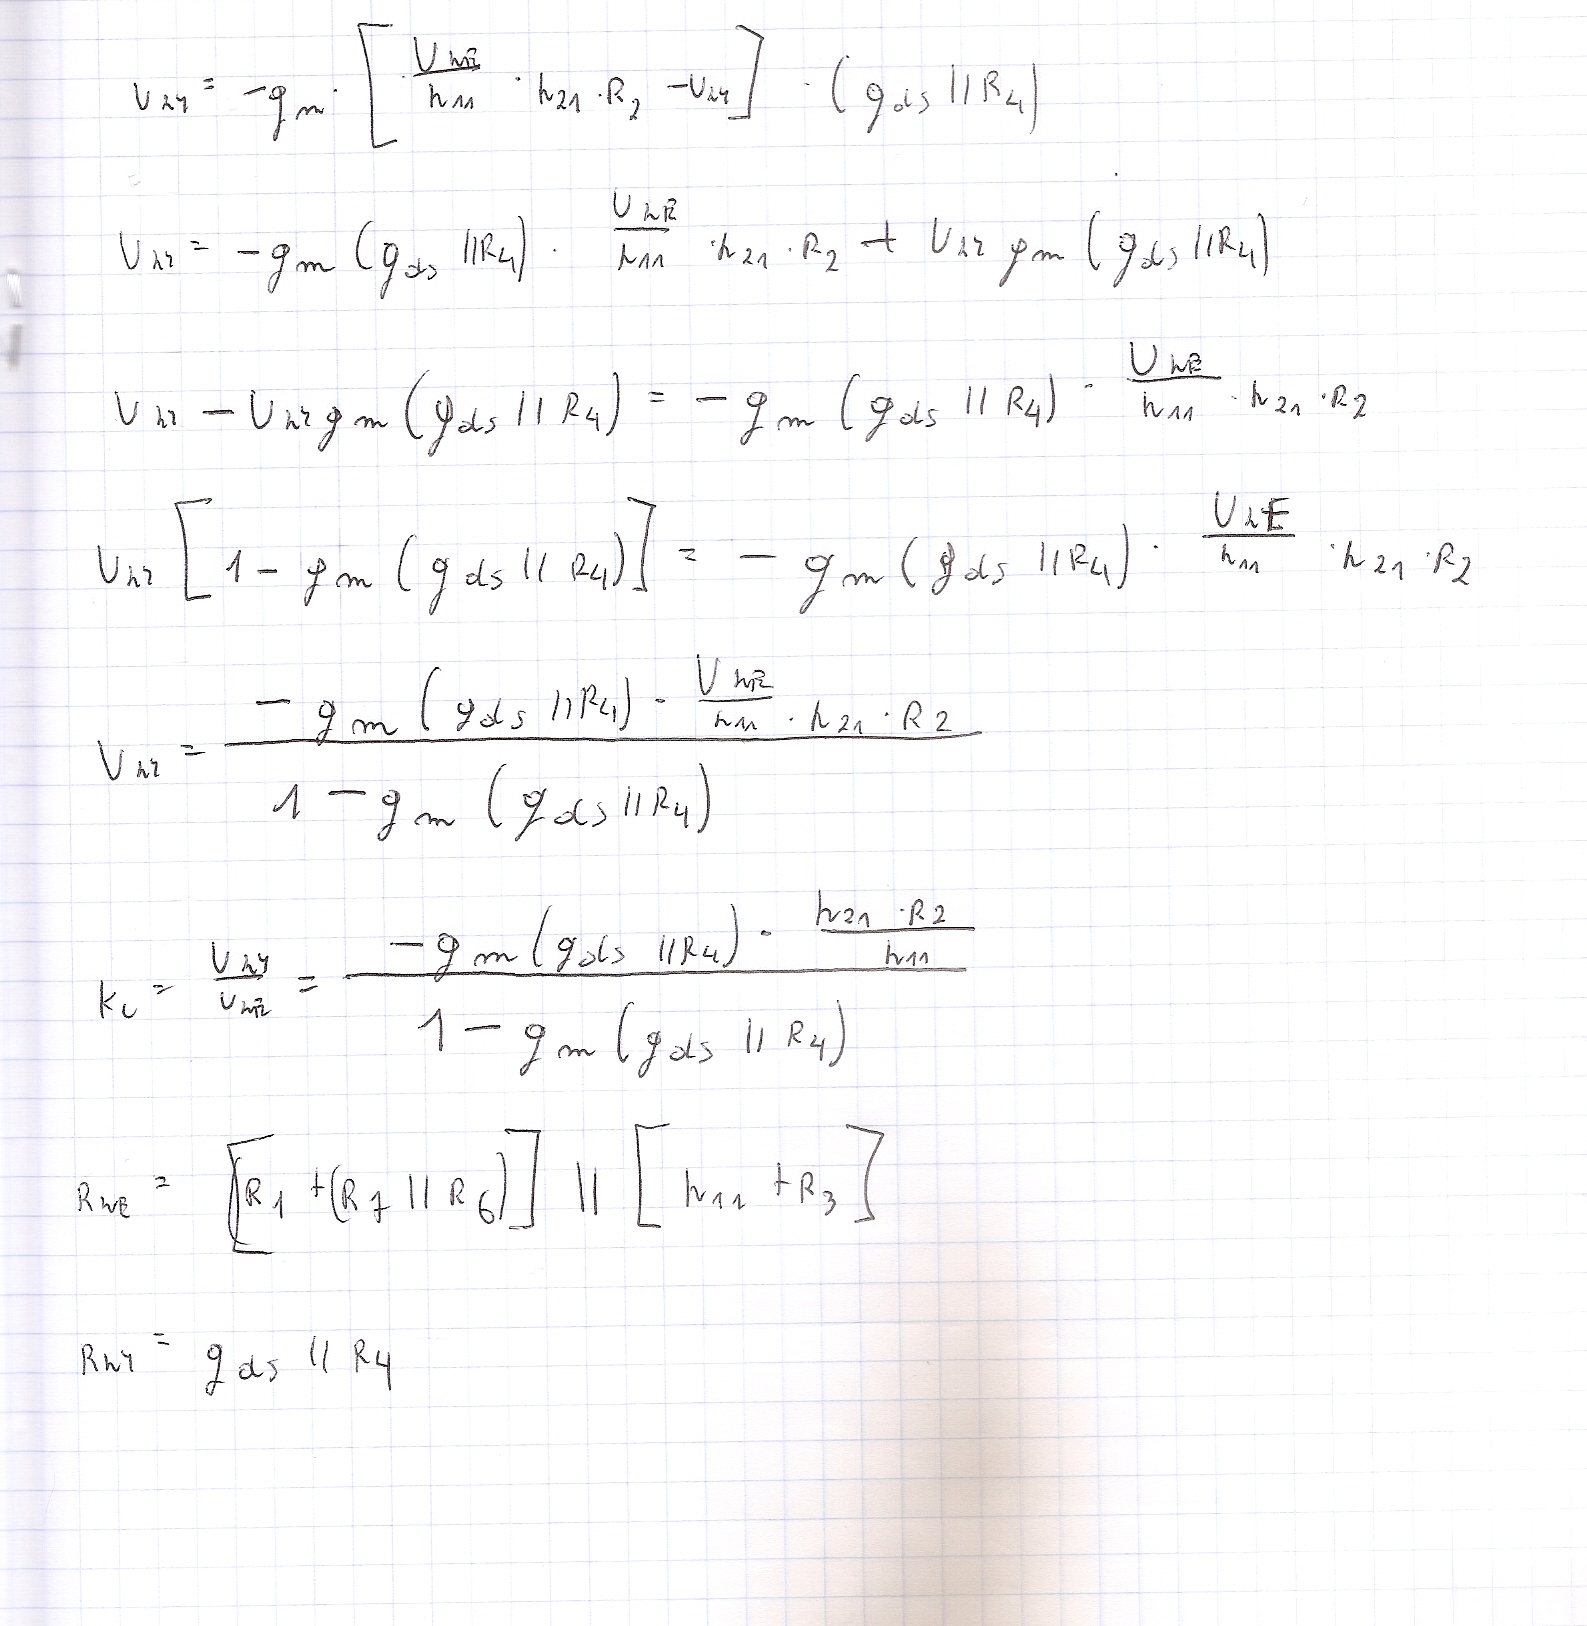 U_wy = -g_m · [ U_we/h_11 · h_21 · R_2 - U_wy ] · (g_ds || R_4)
U_wy = -g_m (g_ds || R_4) · U_we/h_11 · h_21 · R_2 + U_wy g_m (g_ds || R_4)
U_wy - U_wy g_m (g_ds || R_4) = -g_m (g_ds || R_4) · U_we/h_11 · h_21 · R_2
U_wy [ 1 - g_m (g_ds || R_4) ] = -g_m (g_ds || R_4) · U_wE/h_11 · h_21 · R_2
U_wy = ( -g_m (g_ds || R_4) · U_we/h_11 · h_21 · R_2 ) / ( 1 - g_m (g_ds || R_4) )
k_u = U_wy/U_we = ( -g_m (g_ds || R_4) · h_21 · R_2/h_11 ) / ( 1 - g_m (g_ds || R_4) )
R_we = [ R_1 + (R_7 || R_6) ] || [ h_11 + R_3 ]
R_wy = g_ds || R_4